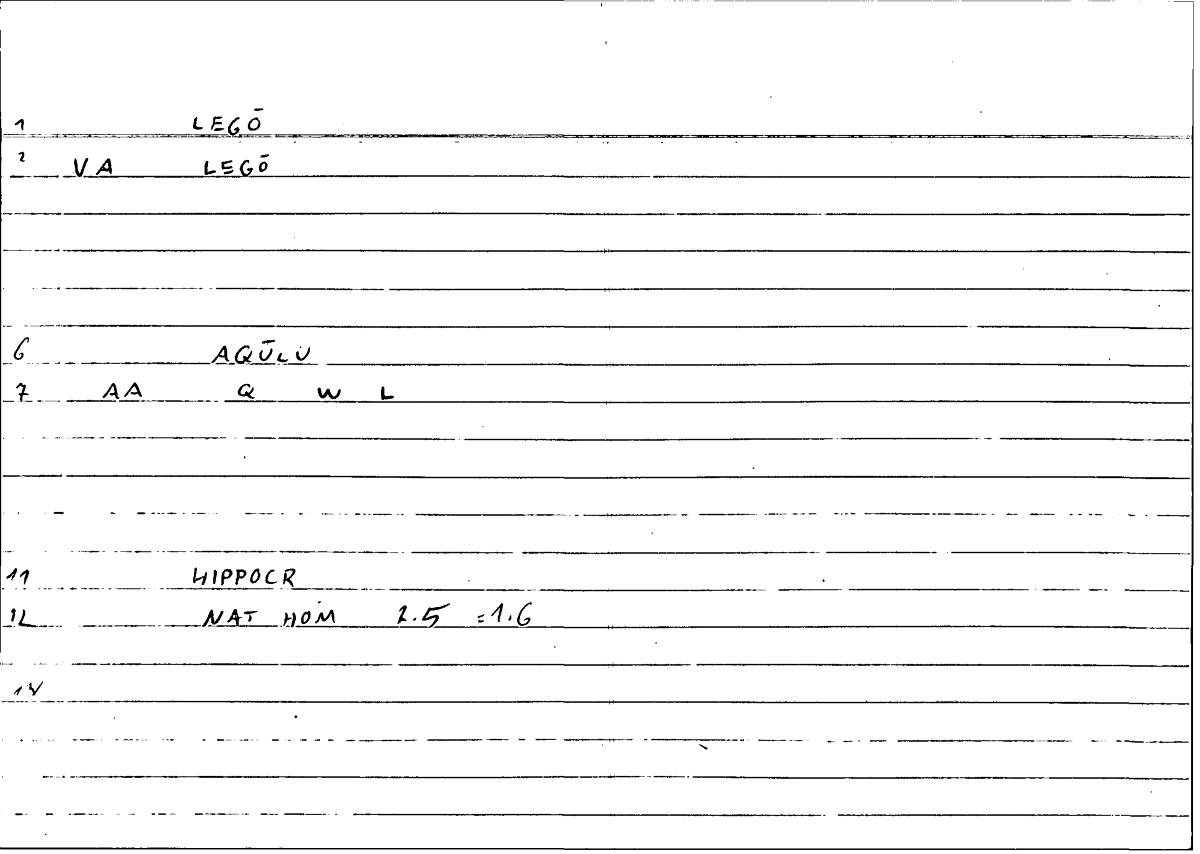 1 LEGŌ
2 VA LEGŌ
6 AQŪLU
7 AA Q W L
11 HIPPOCR
12 NAT HOM 2.5 =1.6